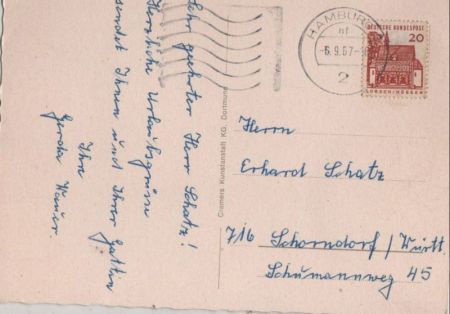 Sehr geehrter Herr Schatz!
Herzliche Urlaubsgrüsse
sendet Ihnen und Ihrer Gattin
Ihre
Gerda
Cramers Kunstanstalt KG, Dortmund
HAMBURG
-6.9.67-
2
DEUTSCHE BUNDESPOST
20
LORSCH/HESSEN
Herrn
Erhard Schatz
716 Schorndorf/Württ.
Schumannweg 45